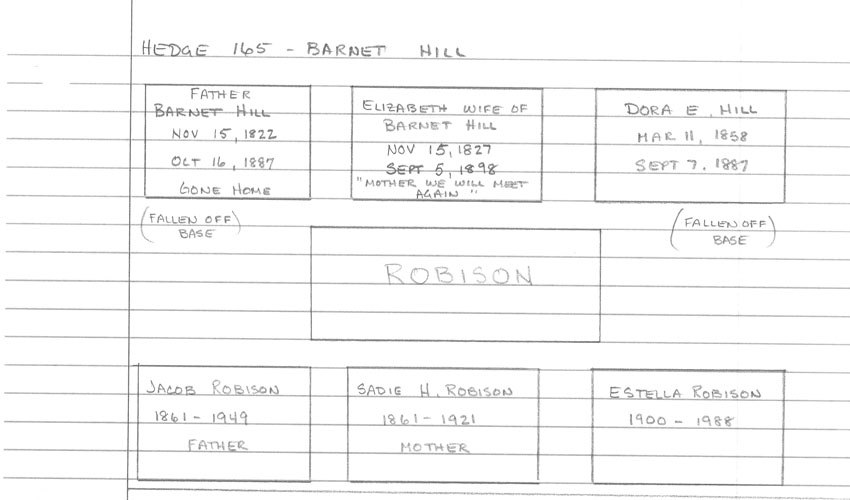 HEDGE 165 - BARNET HILL
FATHER
BARNET HILL
NOV 15, 1822
OCT 16, 1887
GONE HOME
ELIZABETH WIFE OF
BARNET HILL
NOV 15, 1827
SEPT 5, 1898
"MOTHER WE WILL MEET
AGAIN"
DORA E. HILL
MAR 11, 1858
SEPT 7. 1887
(FALLEN OFF
BASE)
(FALLEN OFF
BASE)
ROBISON
JACOB ROBISON
1861 - 1949
FATHER
SADIE H. ROBISON
1861 - 1921
MOTHER
ESTELLA ROBISON
1900 - 1988